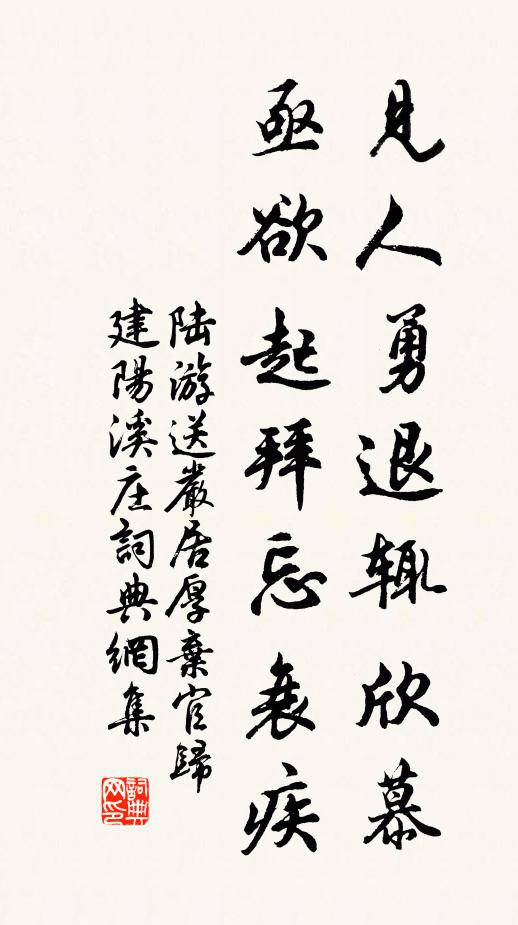 見人勇退輒欣慕
亟欲起拜忘衰疾
陆游送嚴居厚棄官歸
建陽溪庄詞典網集
詞典网印